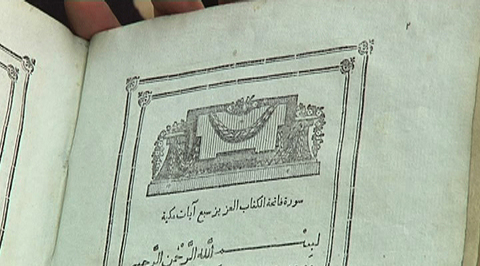 ٢
سورة فاتحة الكتاب العزيز سبع آيات مكية
بسم الله الرحمن الرحيم